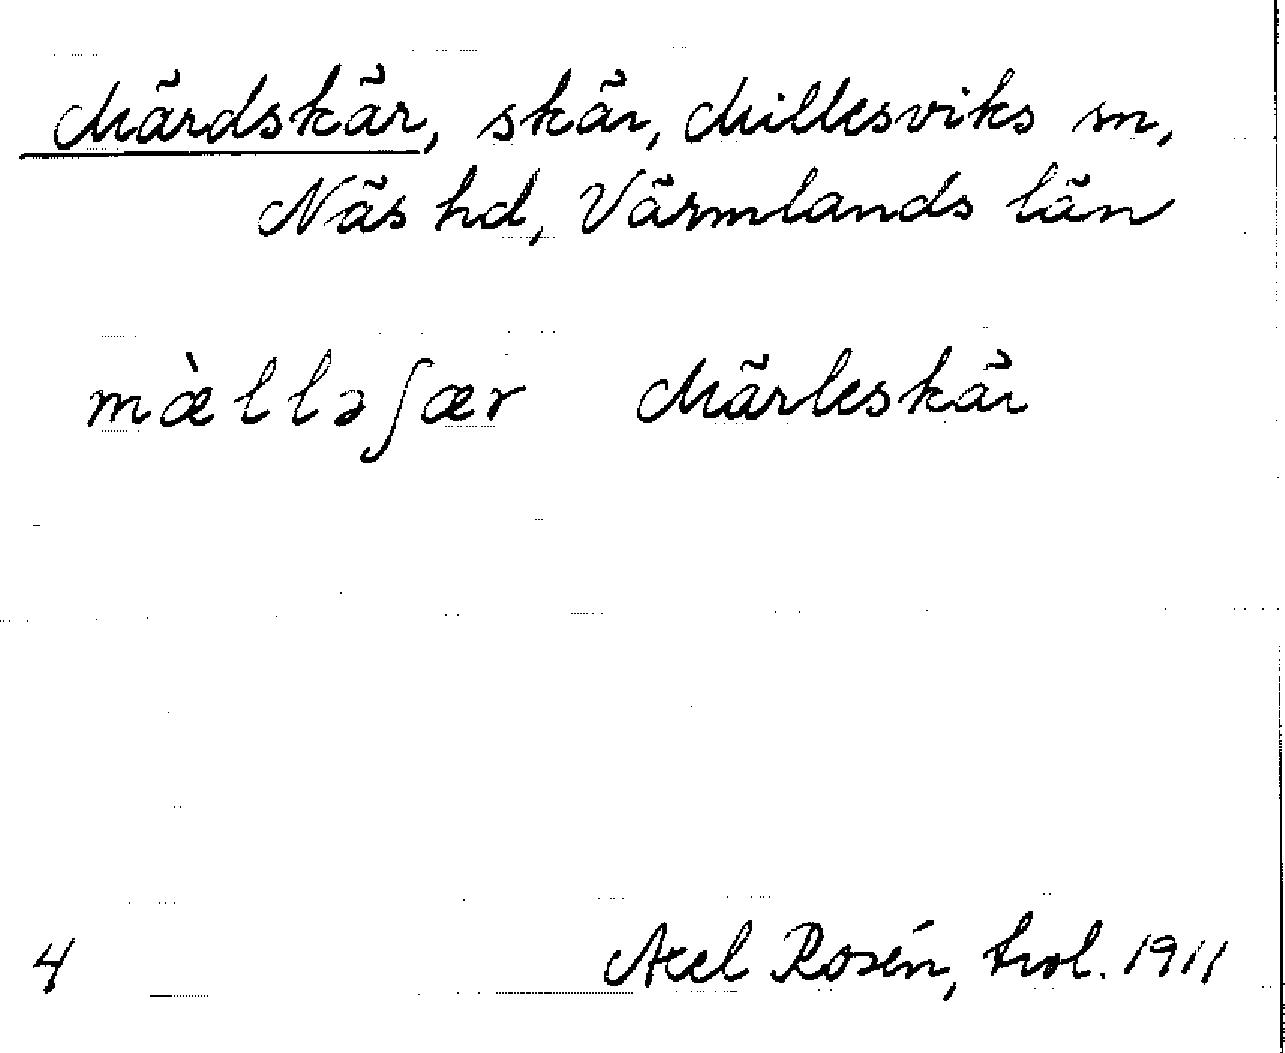 Märdskär, skär, Millesviks sn,
Näs hd, Värmlands län
mæ̀lləʃær Märleskär
4 Axel Rosén, trol. 1911